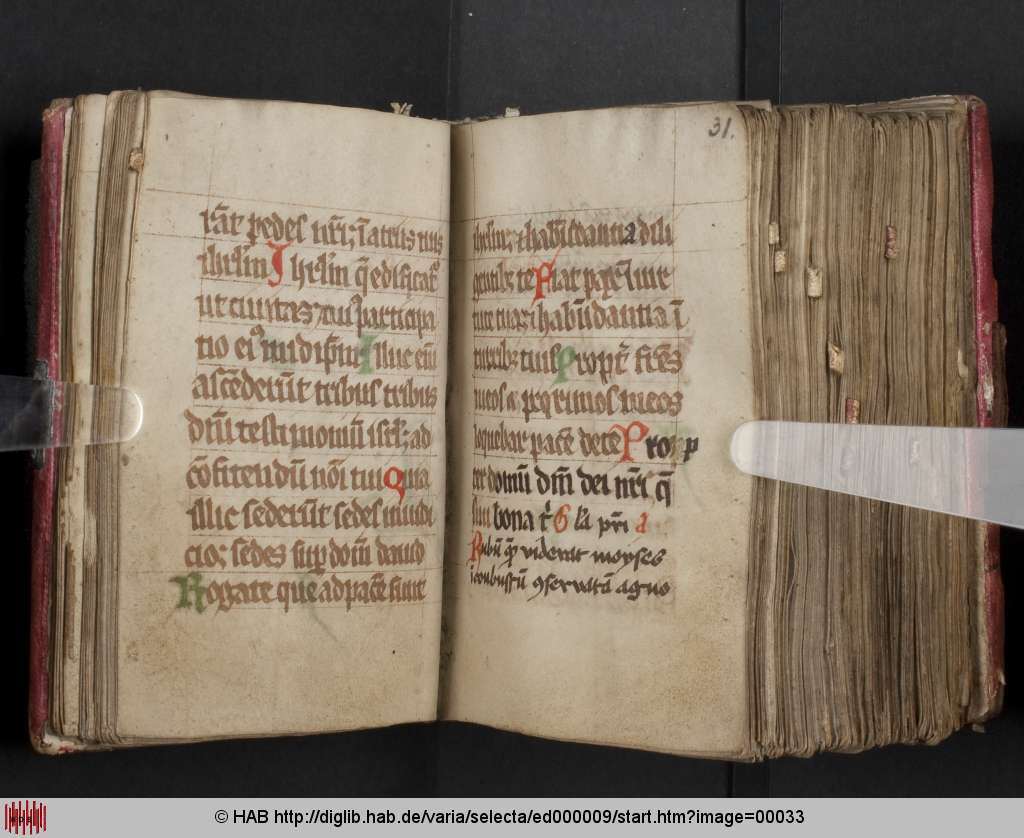 rāt pedes nr̄i; ī atriis tuis
ihrlm̄ Jhrlm̄ q̄ edificat᷑
ut ciuitas; cuꝰ participa
tio eiꝰ in idip̄m Illuc em̄
ascēderūt tribus tribus
dn̄i testimoniū isrl̄; ad
cōfitendū nōi tui Quia
illic sederūt sedes in iudi
cio; sedes sup domū dauid
Rogate que ad pacē sunt
31.
ihrlm̄; ⁊ habūdantia dili
gentibꝫ te Fiat pax ī uir
tute tua; ⁊ habūdantia ī
turribꝫ tuis Propt̄ fr̄es
meos ⁊ proximos meos
loquebar pacē de te Prop
ter domū dn̄i dei nr̄i q̄
siui bona t̄ Gla pr̄i a
Rubū quē viderat moyses
incombustū ꝯseruatā agno
© HAB http://diglib.hab.de/varia/selecta/ed000009/start.htm?image=00033